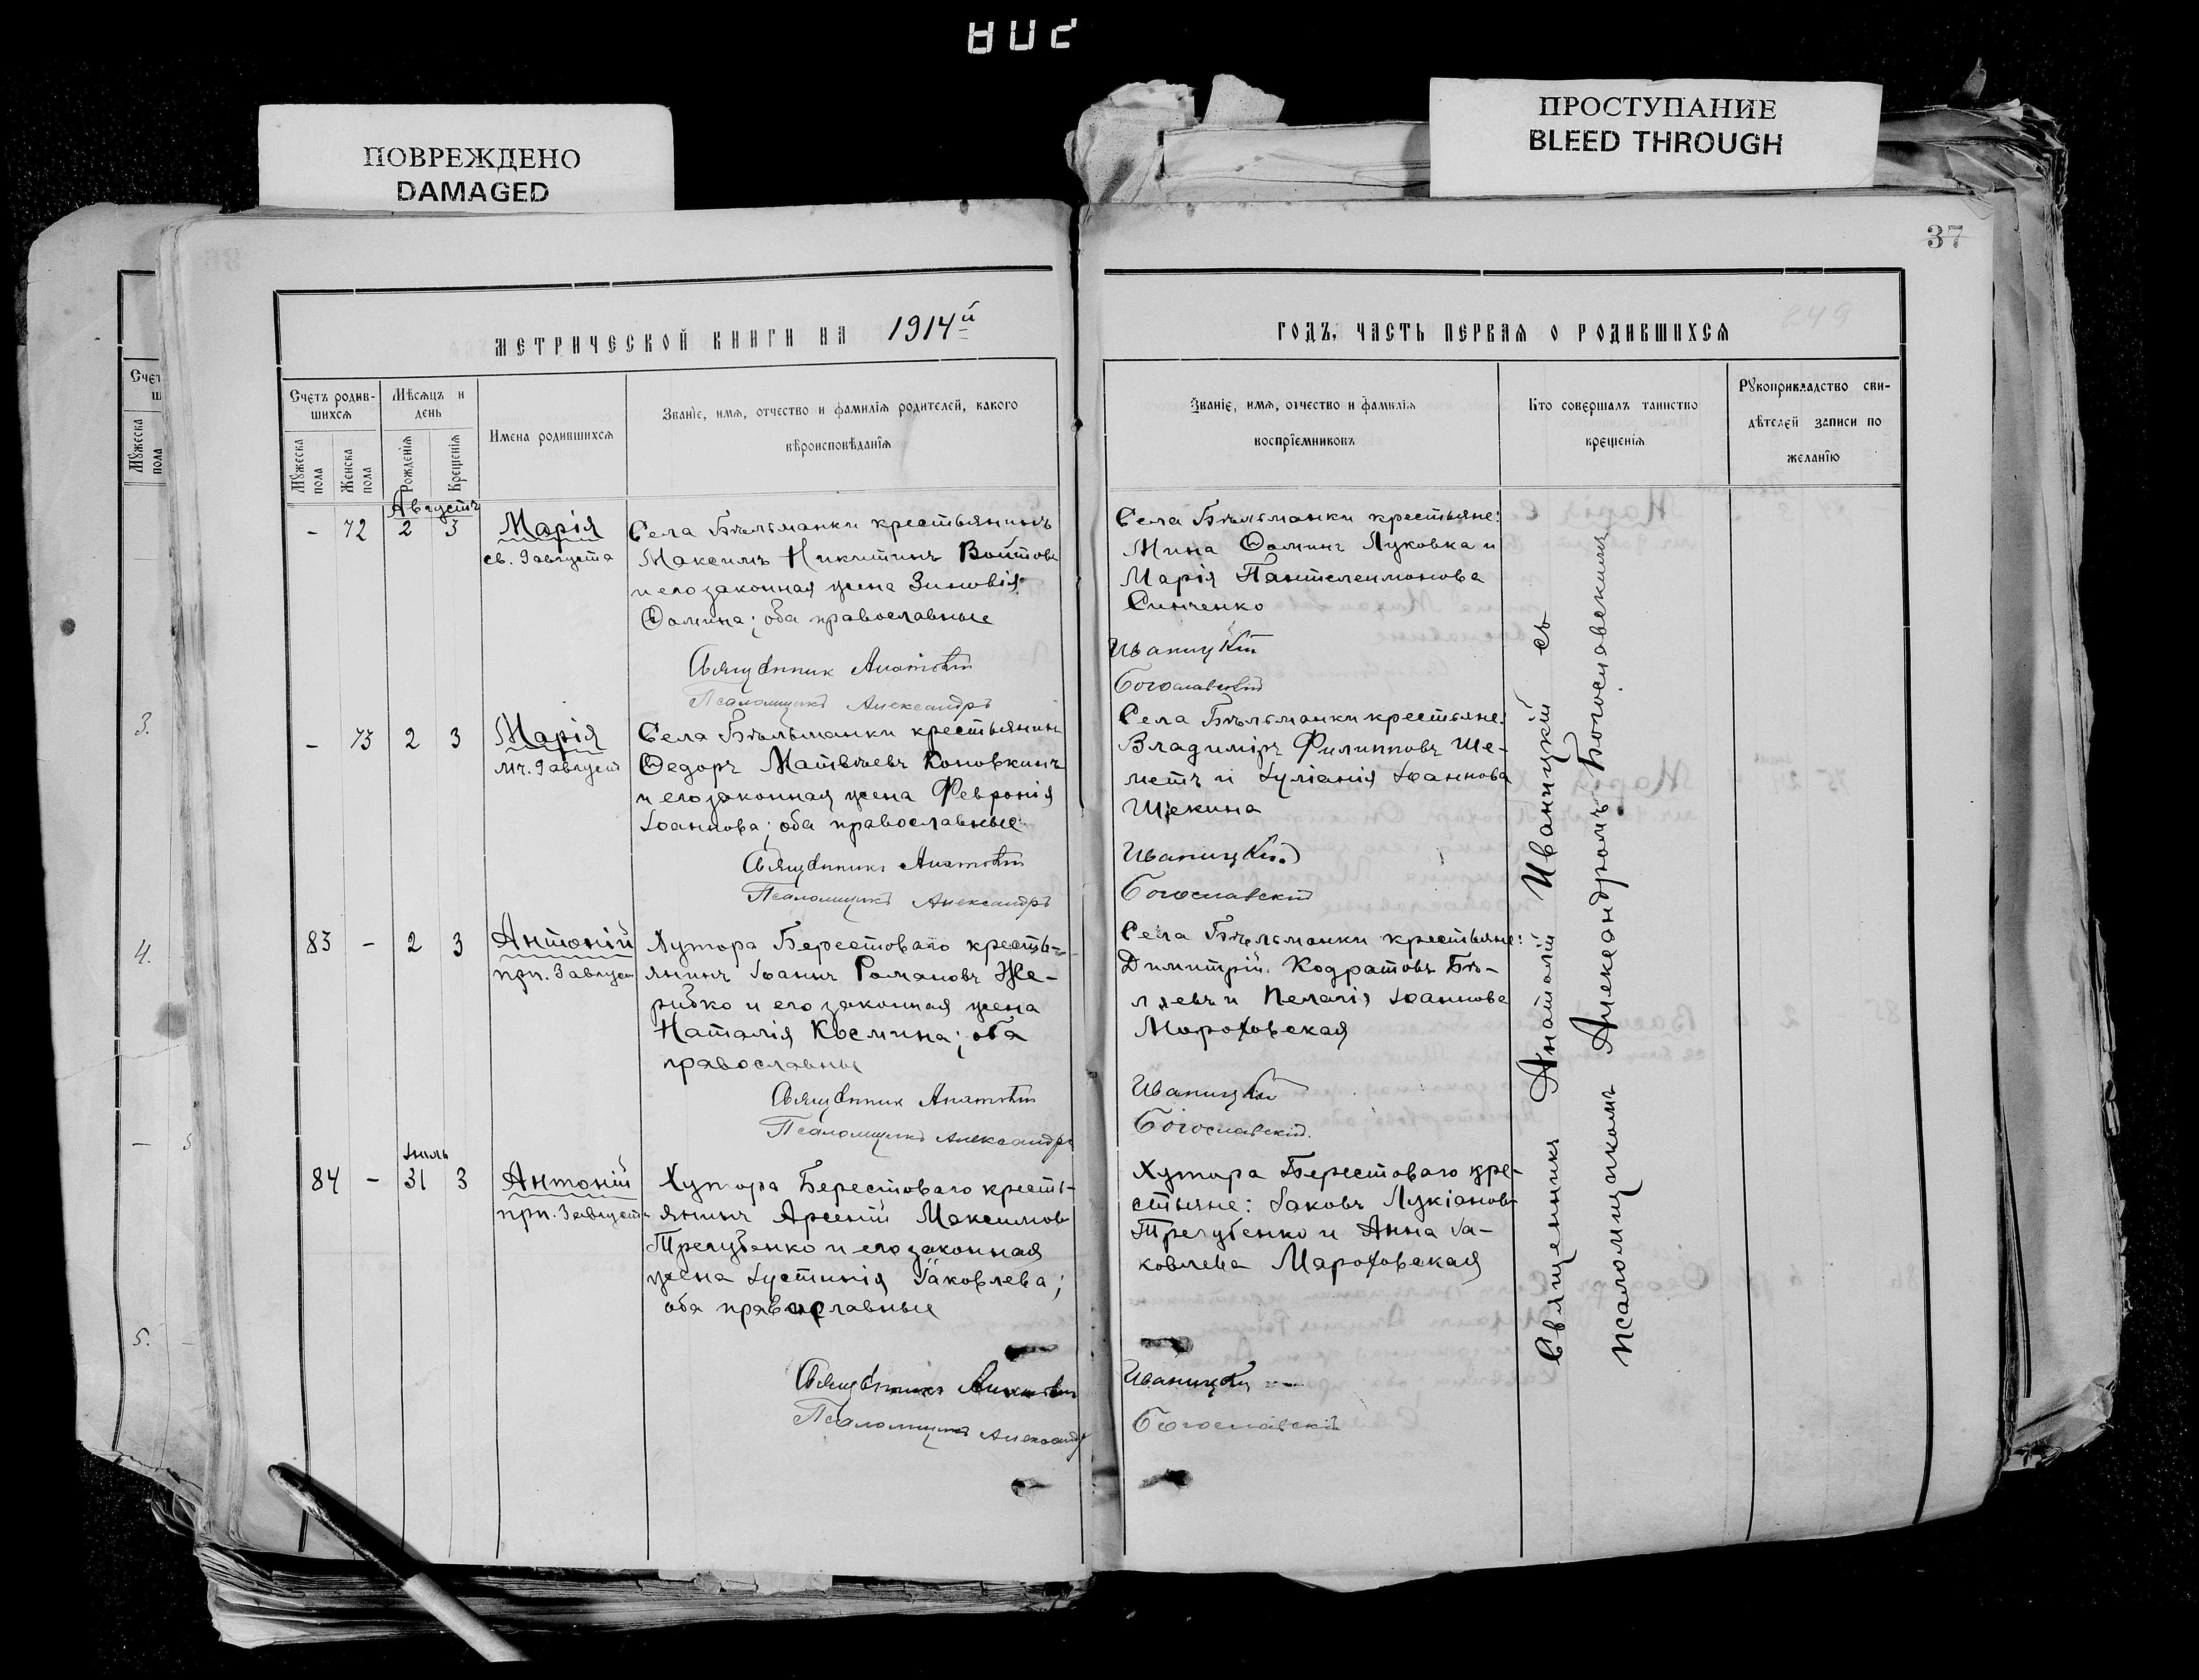 ПОВРЕЖДЕНО
DAMAGED
ПРОСТУПАНИЕ
BLEED THROUGH
37
МЕТРИЧЕСКОЙ КНИГИ НА 1914й
ГОДЪ, ЧАСТЬ ПЕРВАЯ О РОДИВШИХСЯ
249
Счетъ родив-
шихся
Мужеска
пола
Женска
пола
Мѣсяцъ и
день
Рожденія
Крещенія
Имена родившихся
Званіе, имя, отчество и фамилія родителей, какого
вѣроисповѣданія
Званіе, имя, отчество и фамилія
воспріемниковъ
Кто совершалъ таинство
крещенія
Рукоприкладство сви-
дѣтелей записи по
желанію
Августъ
- 72 2 3 Марія
св. 9 августа
Села Бѣльманки крестьянинъ
Максимъ Никитинъ Войтовъ
и его законная жена Зиновія
Ѳомина; оба православные
Священник Анатолій
Псаломщикъ Александръ
Села Бѣльманки крестьяне:
Мина Ѳоминъ Луковка и
Марія Пантелеимонова
Синченко
Иваницкій
Богословскій
- 73 2 3 Марія
мч. 9 август
Села Бѣльманки крестьянин
Ѳедоръ Матвѣевъ Коновкинъ
и его законная жена Февронія
Іоаннова; оба православные
Священникъ Анатолій
Псаломщикъ Александръ
Села Бѣльманки крестьяне:
Владиміръ Филипповъ Ше-
метъ и Іуліанія Іоаннова
Щекина
Иваницкій
Богословскій
83 - 2 3 Антоній
прп. 3 август
Хутора Берестоваго кресть-
янинъ Іоаннъ Романовъ Же-
рибко и его законная жена
Наталія Космина; оба
православны
Священник Анатолій
Псаломщикъ Александръ
Села Бѣльманки крестьяне:
Димитрій Кодратовъ Бѣ-
ляевъ и Пелагія Іоаннова
Мороховская
Иваницкій
Богословскій
Іюль
84 - 31 3 Антоній
прп. 3 августа
Хутора Берестоваго кресть-
янинъ Арсеній Максимовъ
Трегубенко и его законная
жена Іустинія Іаковлева;
оба православные
Священникъ Анатолій
Псаломщикъ Александр
Хутора Берестоваго кре-
стьяне: Іаковъ Лукіановъ
Трегубенко и Анна Іа-
ковлева Мароховская
Иваницкій
Богословскій
Священникъ Анатолій Иваницкій съ
псаломщикомъ Александромъ Богословскимъ
Счет
ш
Мужеска
пола
3.
4.
5.